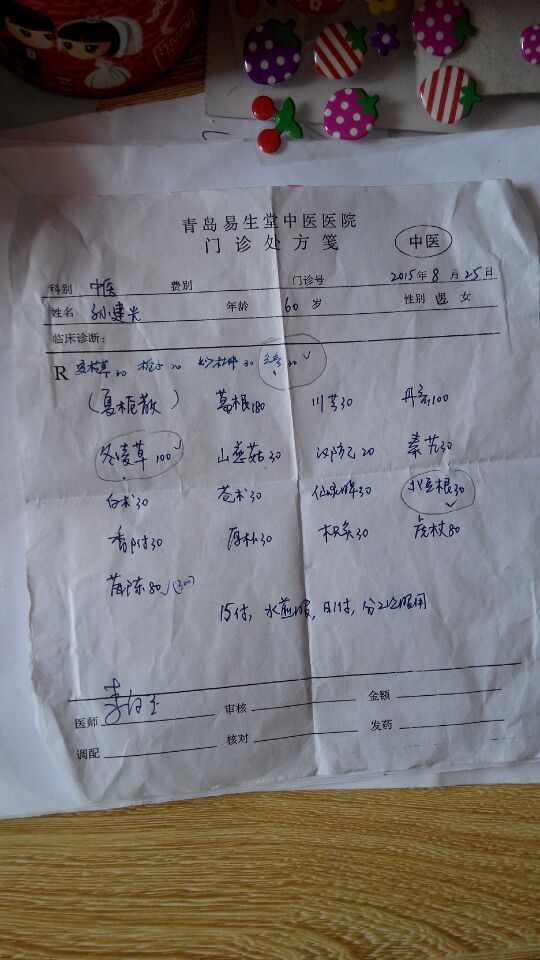 青岛易生堂中医医院
门诊处方笺 中医
科别 中医 费别 门诊号 2015年8月25日
姓名 孙建光 年龄 60岁 性别 男 女
临床诊断:
R 夏枯草30 栀子20 炒杜仲30 30
(夏栀散) 葛根180 川芎30 丹参100
冬凌草100 山慈菇30 汉防己20 秦艽30
白术30 苍术30 仙灵脾30 北豆根30
香附30 厚朴30 枳实30 虎杖80
茵陈80
15付,水煎服,日1付,分2次服用
医师 审核 金额
调配 核对 发药